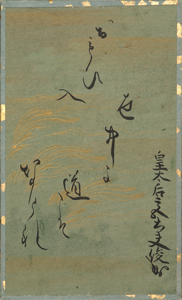 皇太后宮大夫俊成
世中よ
道こそ
なけれ
おもひ
入